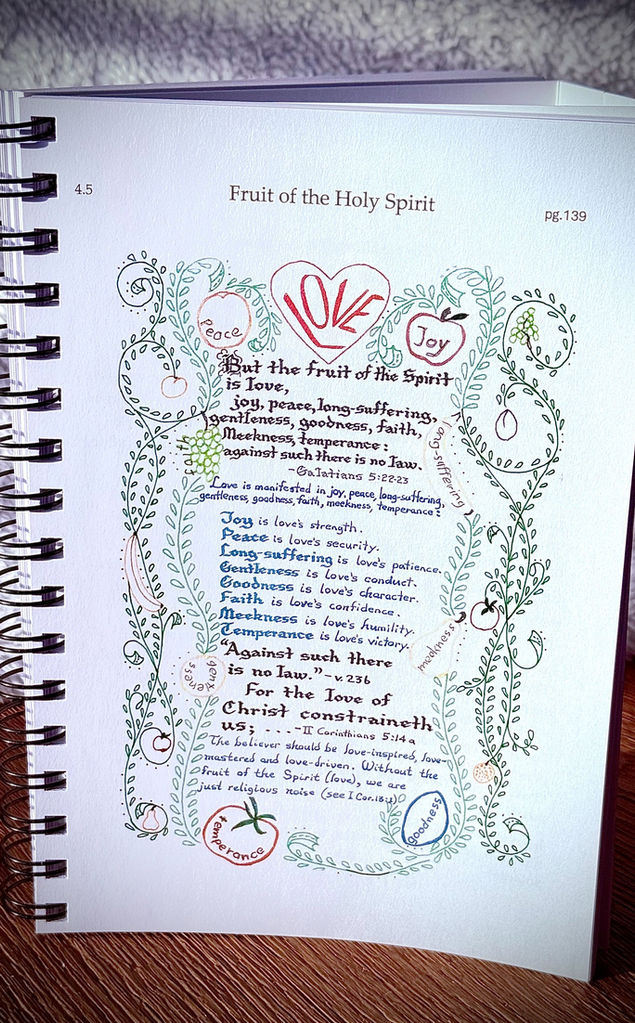 4.5
Fruit of the Holy Spirit
pg.139
LOVE
Peace
Joy
But the fruit of the Spirit
is love,
joy, peace, long-suffering,
gentleness, goodness, faith,
Meekness, temperance:
against such there is no law.
-Galatians 5:22-23
long-suffering
Love is manifested in joy, peace, long-suffering,
gentleness, goodness, faith, meekness, temperance:
Joy is love's strength.
Peace is love's security.
Long-suffering is love's patience.
Gentleness is love's conduct.
Goodness is love's character.
Faith is love's confidence.
Meekness is love's humility.
Temperance is love's victory.
meekness
"Against such there
is no law."-v.23b
gentleness
For the love of
Christ constraineth
us; ....-II Corinthians 5:14a
The believer should be love-inspired, love-
mastered and love-driven. Without the
fruit of the Spirit (love), we are
just religious noise (see I Cor.13:1)
temperance
goodness